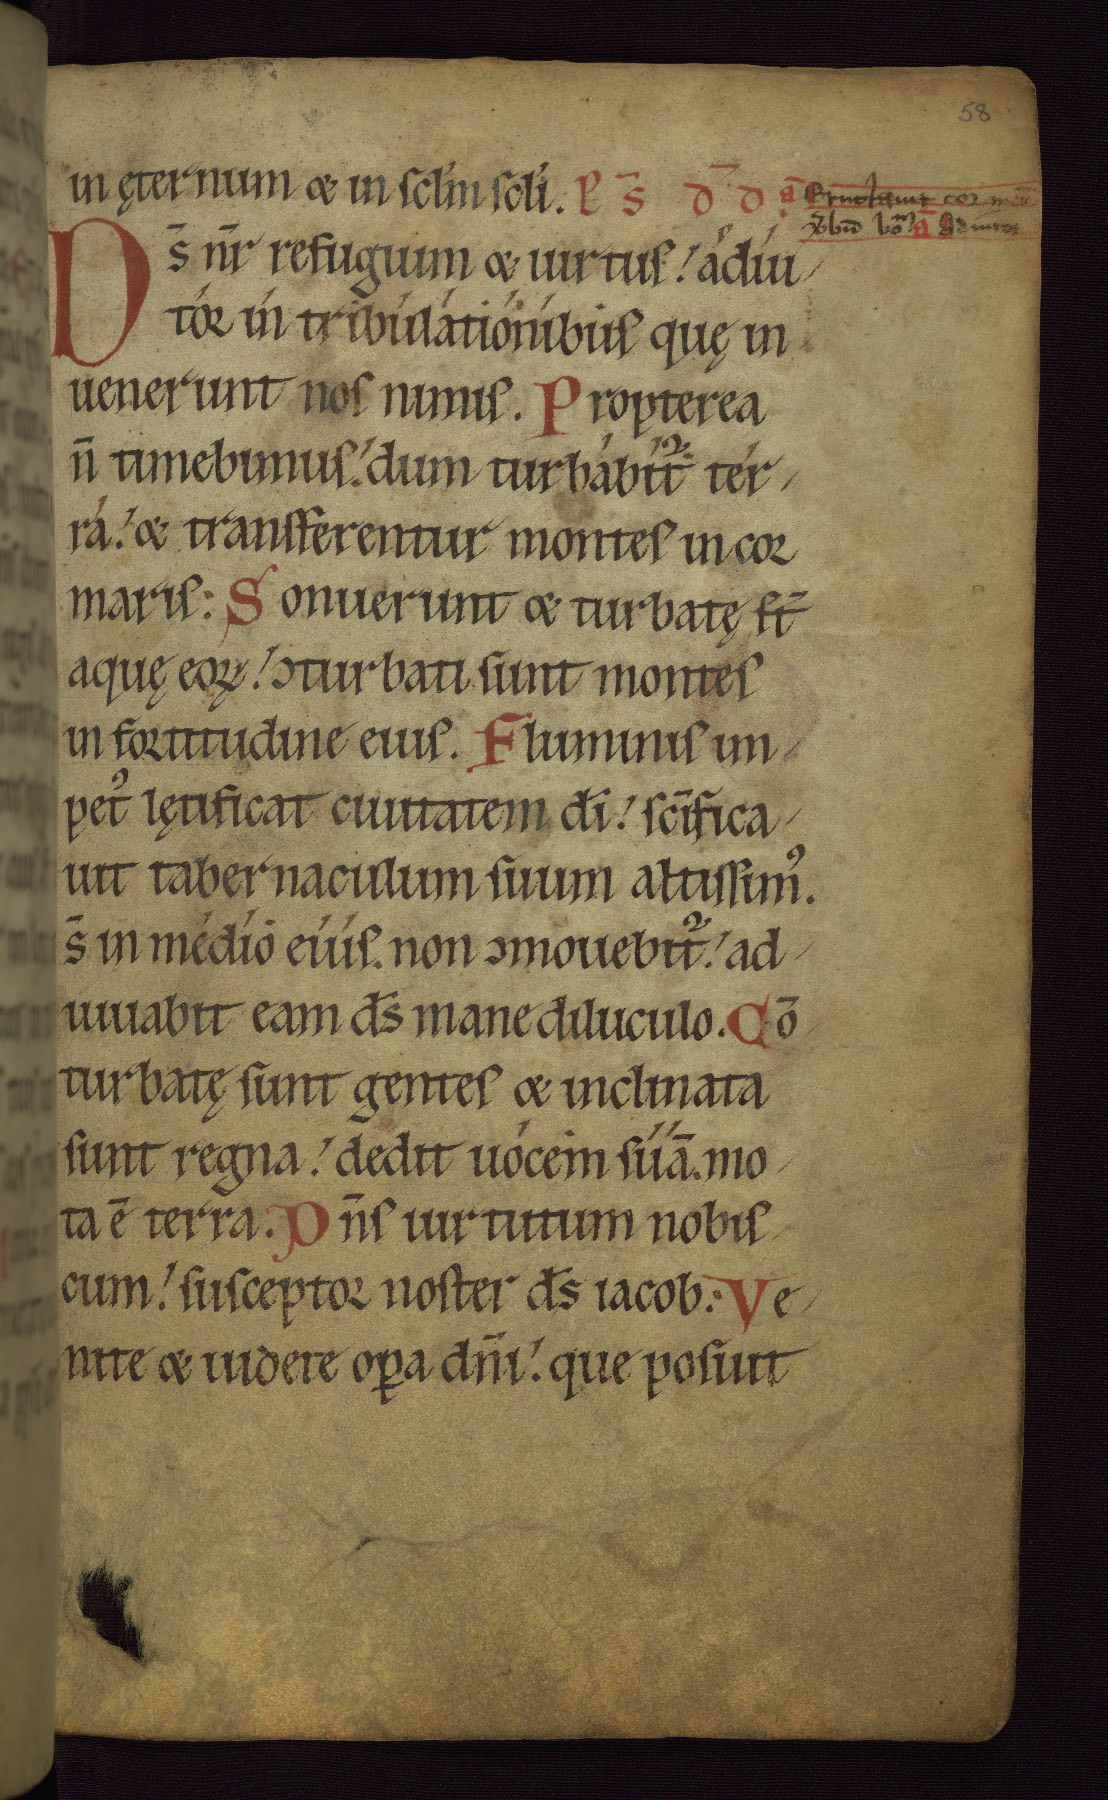 58
in ęternum & in sc̄lm sc̄li. P s̄ D̄ D
ā Eructauit cor meū
ūbū bo͞m ā Adiutor
D s̄ nr̄ refugium & uirtus! adiu
tor in tribulationibus quę in
uenerunt nos nimis. Propterea
n̄ timebimus! dum turbabit᷑ ter
ra! & transferentur montes in cor
maris: Sonuerunt & turbatę st̄
aquę eoꝝ! ɔturbati sunt montes
in fortitudine eius. Fluminis im
petꝰ lętificat ciuitatem dī! sc̄ifica
uit tabernaculum suum altissimꝰ.
s̄ in medio eius. non ɔmouebit᷑! ad
iuuabit eam ds̄ mane diluculo. Cō
turbatę sunt gentes & inclinata
sunt regna! dedit uocem suā. mo
ta ē terra. Dn̄s uirtutum nobis
cum! susceptor noster ds̄ iacob. Ve
nite & uidete oꝑa dn̄i! que posuit